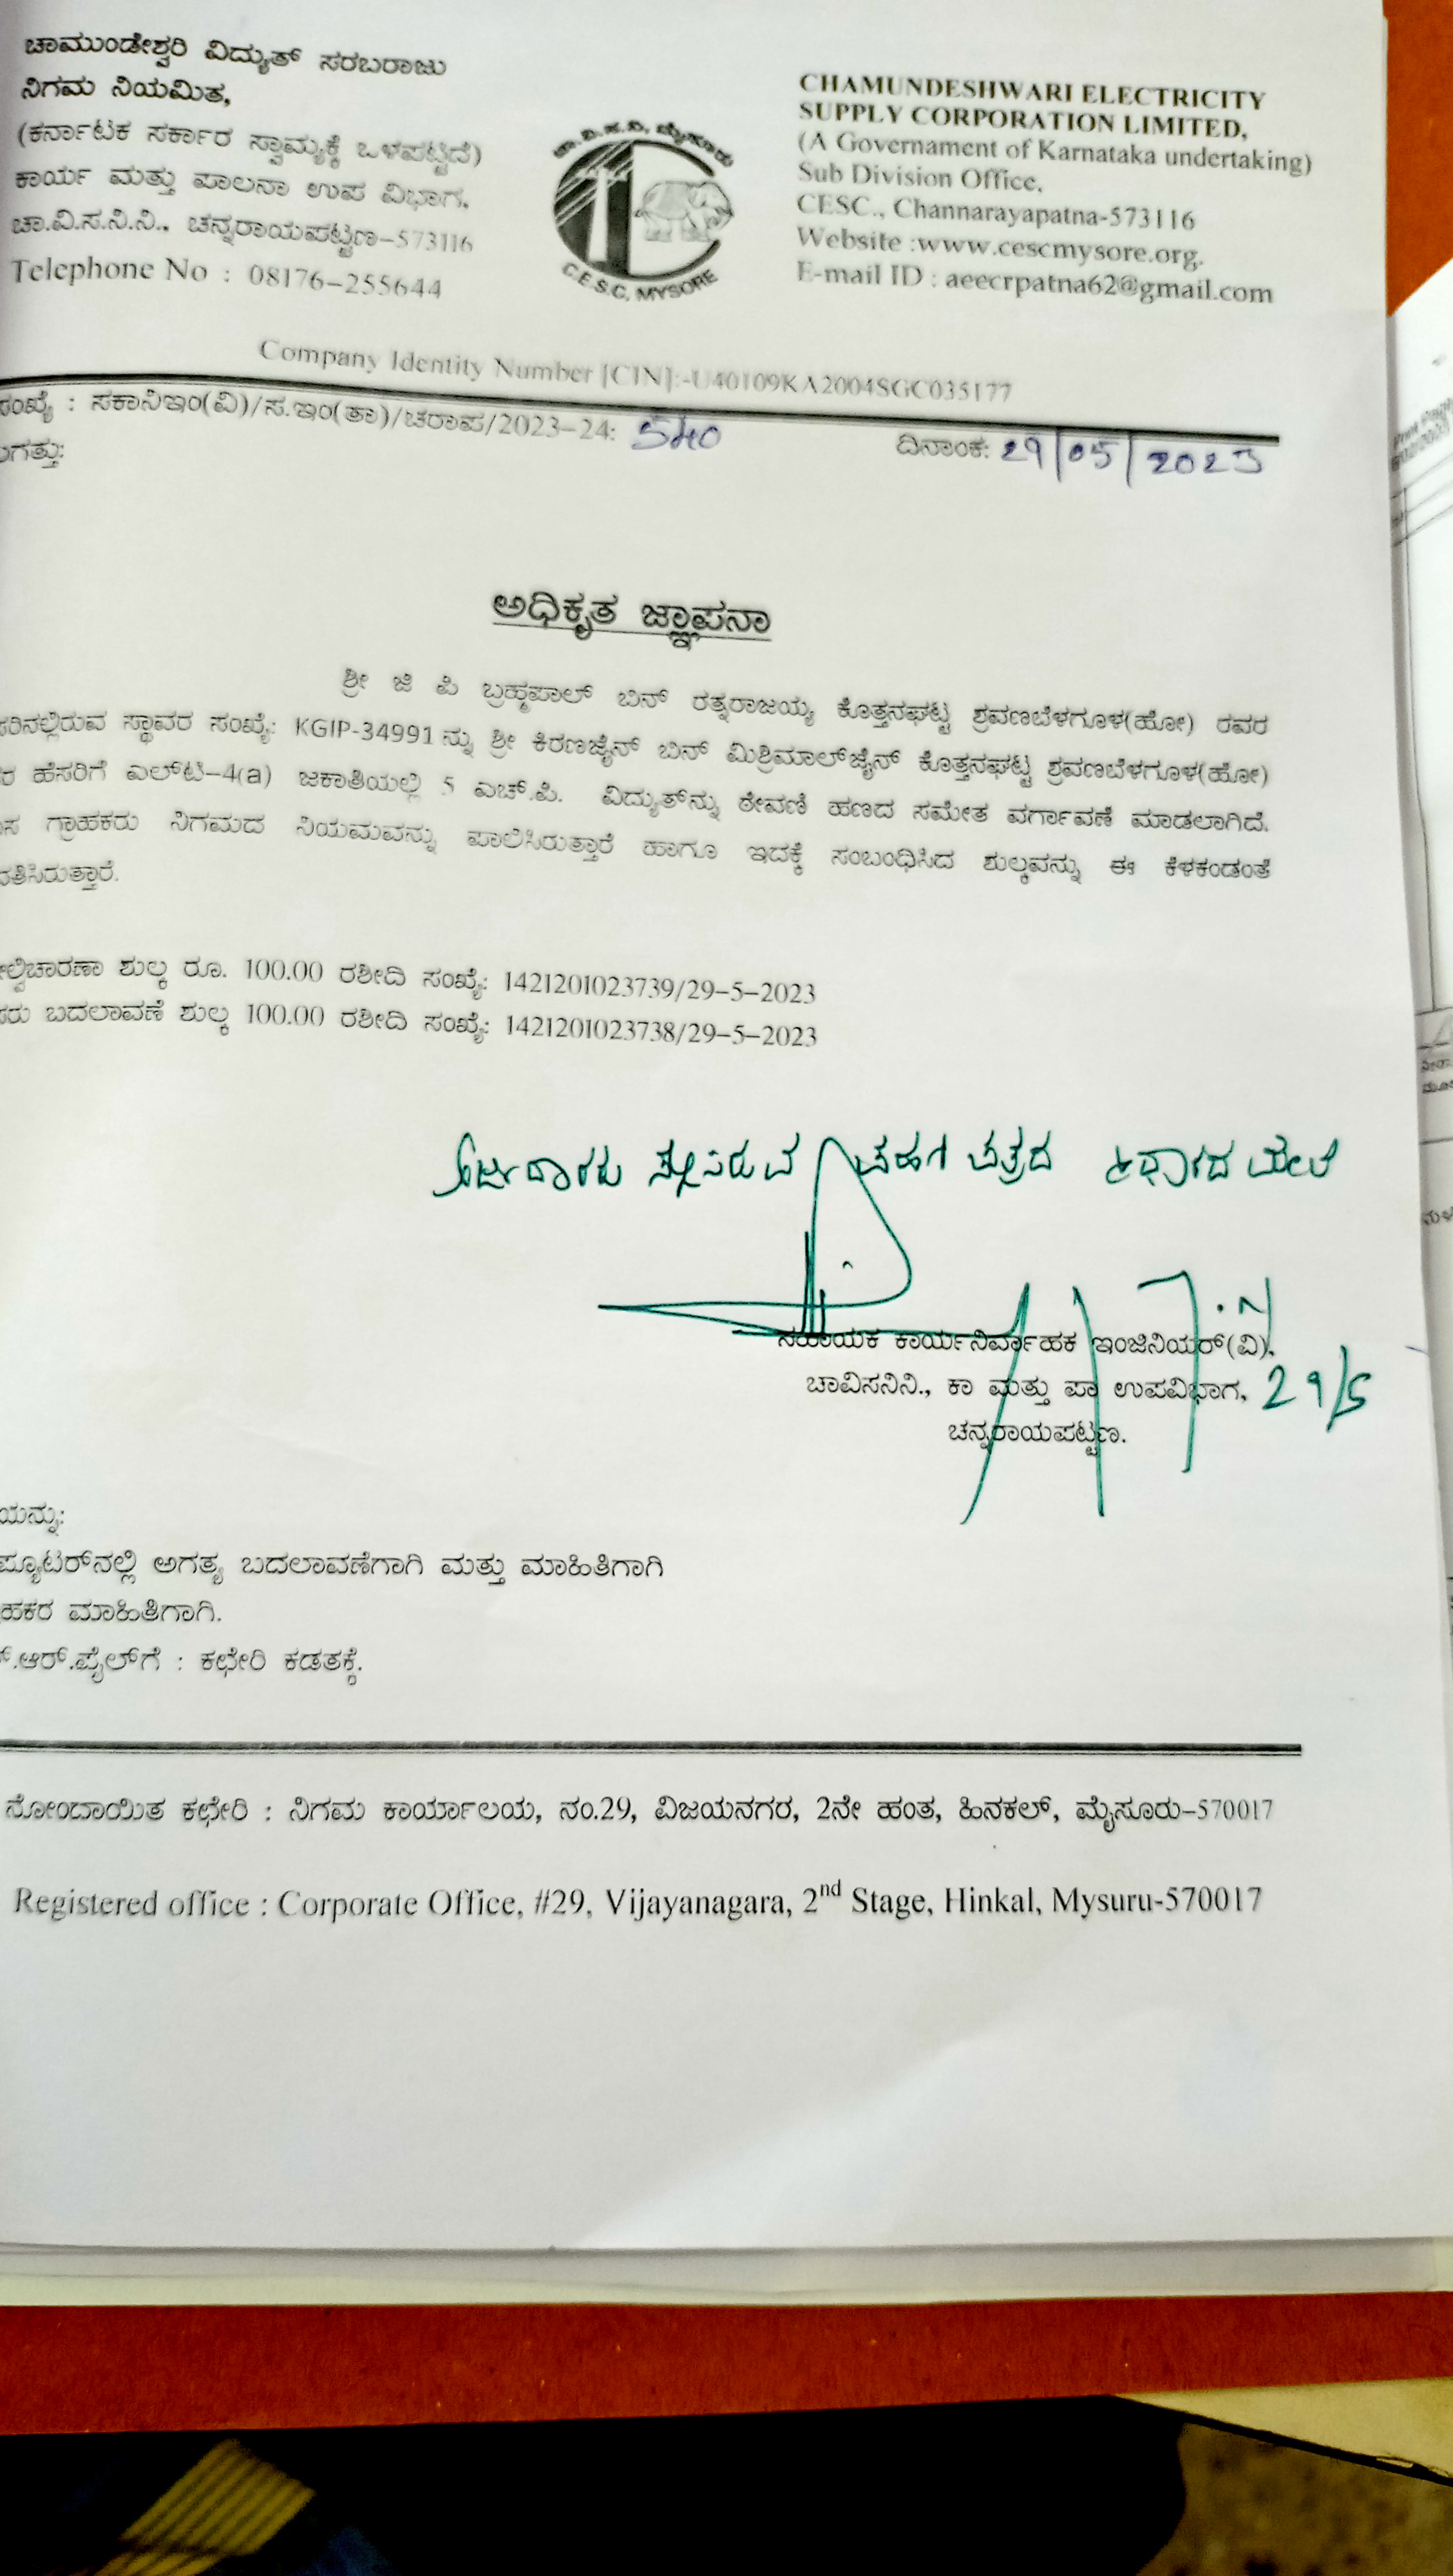 ಚಾಮುಂಡೇಶ್ವರಿ ವಿದ್ಯುತ್ ಸರಬರಾಜು
ನಿಗಮ ನಿಯಮಿತ,
(ಕರ್ನಾಟಕ ಸರ್ಕಾರ ಸ್ವಾಮ್ಯಕ್ಕೆ ಒಳಪಟ್ಟಿದೆ)
ಕಾರ್ಯ ಮತ್ತು ಪಾಲನಾ ಉಪ ವಿಭಾಗ,
ಚಾ.ವಿ.ಸ.ನಿ.ನಿ., ಚನ್ನರಾಯಪಟ್ಟಣ-573116
Telephone No : 08176-255644
ಚಾ.ವಿ.ಸ.ನಿ, ಮೈಸೂರು
C.E.S.C, MYSORE
CHAMUNDESHWARI ELECTRICITY
SUPPLY CORPORATION LIMITED,
(A Governament of Karnataka undertaking)
Sub Division Office,
CESC., Channarayapatna-573116
Website :www.cescmysore.org.
E-mail ID : aeecrpatna62@gmail.com
Company Identity Number [CIN]:-U40109KA2004SGC035177
ಸಂಖ್ಯೆ : ಸಕಾನಿಇಂ(ವಿ)/ಸ.ಇಂ(ತಾ)/ಚರಾಪ/2023-24: 540 ದಿನಾಂಕ: 29/05/2023
ಗತ್ತು:
ಅಧಿಕೃತ ಜ್ಞಾಪನಾ
ಶ್ರೀ ಜಿ ಪಿ ಬ್ರಹ್ಮಪಾಲ್ ಬಿನ್ ರತ್ನರಾಜಯ್ಯ ಕೊತ್ತನಘಟ್ಟ ಶ್ರವಣಬೆಳಗೂಳ(ಹೋ) ರವರ
ಸರಿನಲ್ಲಿರುವ ಸ್ಥಾವರ ಸಂಖ್ಯೆ: KGIP-34991 ನ್ನು ಶ್ರೀ ಕಿರಣಜೈನ್ ಬಿನ್ ಮಿಶ್ರಿಮಾಲ್‌ಜೈನ್ ಕೊತ್ತನಘಟ್ಟ ಶ್ರವಣಬೆಳಗೂಳ(ಹೋ)
ರ ಹೆಸರಿಗೆ ಎಲ್‌ಟಿ-4(a) ಜಕಾತಿಯಲ್ಲಿ 5 ಎಚ್.ಪಿ. ವಿದ್ಯುತ್‌ನ್ನು ಠೇವಣಿ ಹಣದ ಸಮೇತ ವರ್ಗಾವಣೆ ಮಾಡಲಾಗಿದೆ.
ಸ ಗ್ರಾಹಕರು ನಿಗಮದ ನಿಯಮವನ್ನು ಪಾಲಿಸಿರುತ್ತಾರೆ ಹಾಗೂ ಇದಕ್ಕೆ ಸಂಬಂಧಿಸಿದ ಶುಲ್ಕವನ್ನು ಈ ಕೆಳಕಂಡಂತೆ
ವತಿಸಿರುತ್ತಾರೆ.
ಲ್ವಿಚಾರಣಾ ಶುಲ್ಕ ರೂ. 100.00 ರಶೀದಿ ಸಂಖ್ಯೆ: 1421201023739/29-5-2023
ಸರು ಬದಲಾವಣೆ ಶುಲ್ಕ 100.00 ರಶೀದಿ ಸಂಖ್ಯೆ: 1421201023738/29-5-2023
ಅರ್ಜಿದಾರರು ಸಲ್ಲಿಸಿರುವ ಪಹಣಿ ಪತ್ರದ ಆಧಾರದ ಮೇಲೆ
ಸಹಾಯಕ ಕಾರ್ಯನಿರ್ವಾಹಕ ಇಂಜಿನಿಯರ್(ವಿ),
ಚಾವಿಸನಿನಿ., ಕಾ ಮತ್ತು ಪಾ ಉಪವಿಭಾಗ, 29/5
ಚನ್ನರಾಯಪಟ್ಟಣ.
ಯನ್ನು:
ಪ್ಯೂಟರ್‌ನಲ್ಲಿ ಅಗತ್ಯ ಬದಲಾವಣೆಗಾಗಿ ಮತ್ತು ಮಾಹಿತಿಗಾಗಿ
ಹಕರ ಮಾಹಿತಿಗಾಗಿ.
.ಆರ್.ಫೈಲ್‌ಗೆ : ಕಛೇರಿ ಕಡತಕ್ಕೆ.
ನೋಂದಾಯಿತ ಕಛೇರಿ : ನಿಗಮ ಕಾರ್ಯಾಲಯ, ನಂ.29, ವಿಜಯನಗರ, 2ನೇ ಹಂತ, ಹಿನಕಲ್, ಮೈಸೂರು-570017
Registered office : Corporate Office, #29, Vijayanagara, 2nd Stage, Hinkal, Mysuru-570017